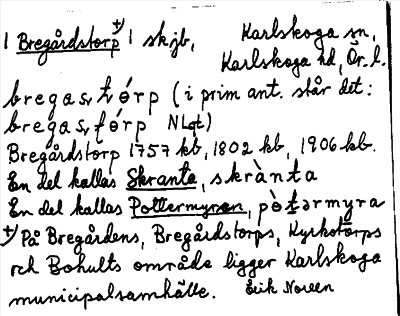 1 Bregårdstorp +) 1 skjb, Karlskoga sn,
Karlskoga hd, Ör. l.
bregas,tórp (i prim ant. står det:
bregas,fórp NLgt)
Bregårdstorp 1757 kb, 1802 kb, 1906 kb.
En del kallas Skranta, skrànta
En del kallas Pottermyren, pòtərmyra
+) På Bregårdens, Bregårdstorps, Kyrkotorps
och Bohults område ligger Karlskoga
municipalsamhälle. Erik Noreen